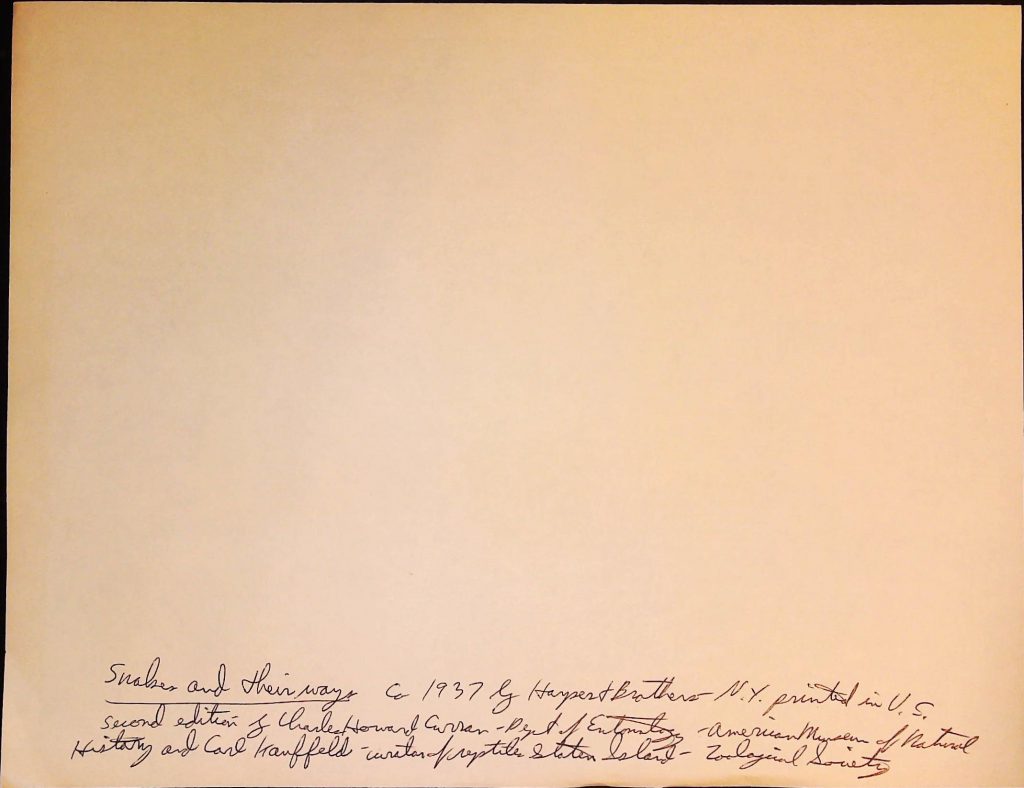 Snakes and their ways Co 1937 by Harper & Brothers N.Y. printed in U.S.
second edition by Charles Howard Curran - Dept of Entomology - American Museum of Natural
History and Carl Kauffeld - curator of reptiles Staten Island - Zoological Society